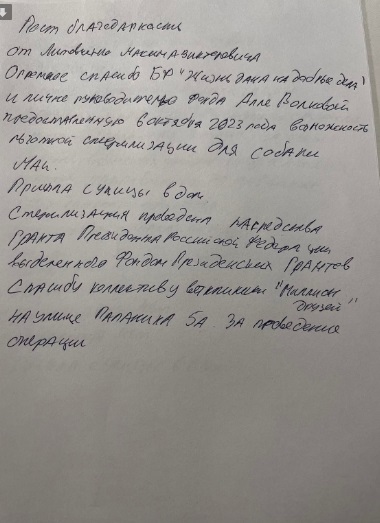 Пост благодарности
от Литовченко Максима Викторовича
Огромное спасибо БФ "Жизнь дана на добрые дела"
и лично руководителю Фонда Алле Волковой
предоставленную в октября 2023 года возможность
льготной стерилизации для собаки
Маи.
Пришла с улицы в дом.
Стерилизация проведена на средства
Гранта Президента Российской Федерации
выделенного Фондом Президенских Грантов
Спасибо коллективу ветклиники "Миллион
друзей"
на улице Папанина 5А за проведения
операции